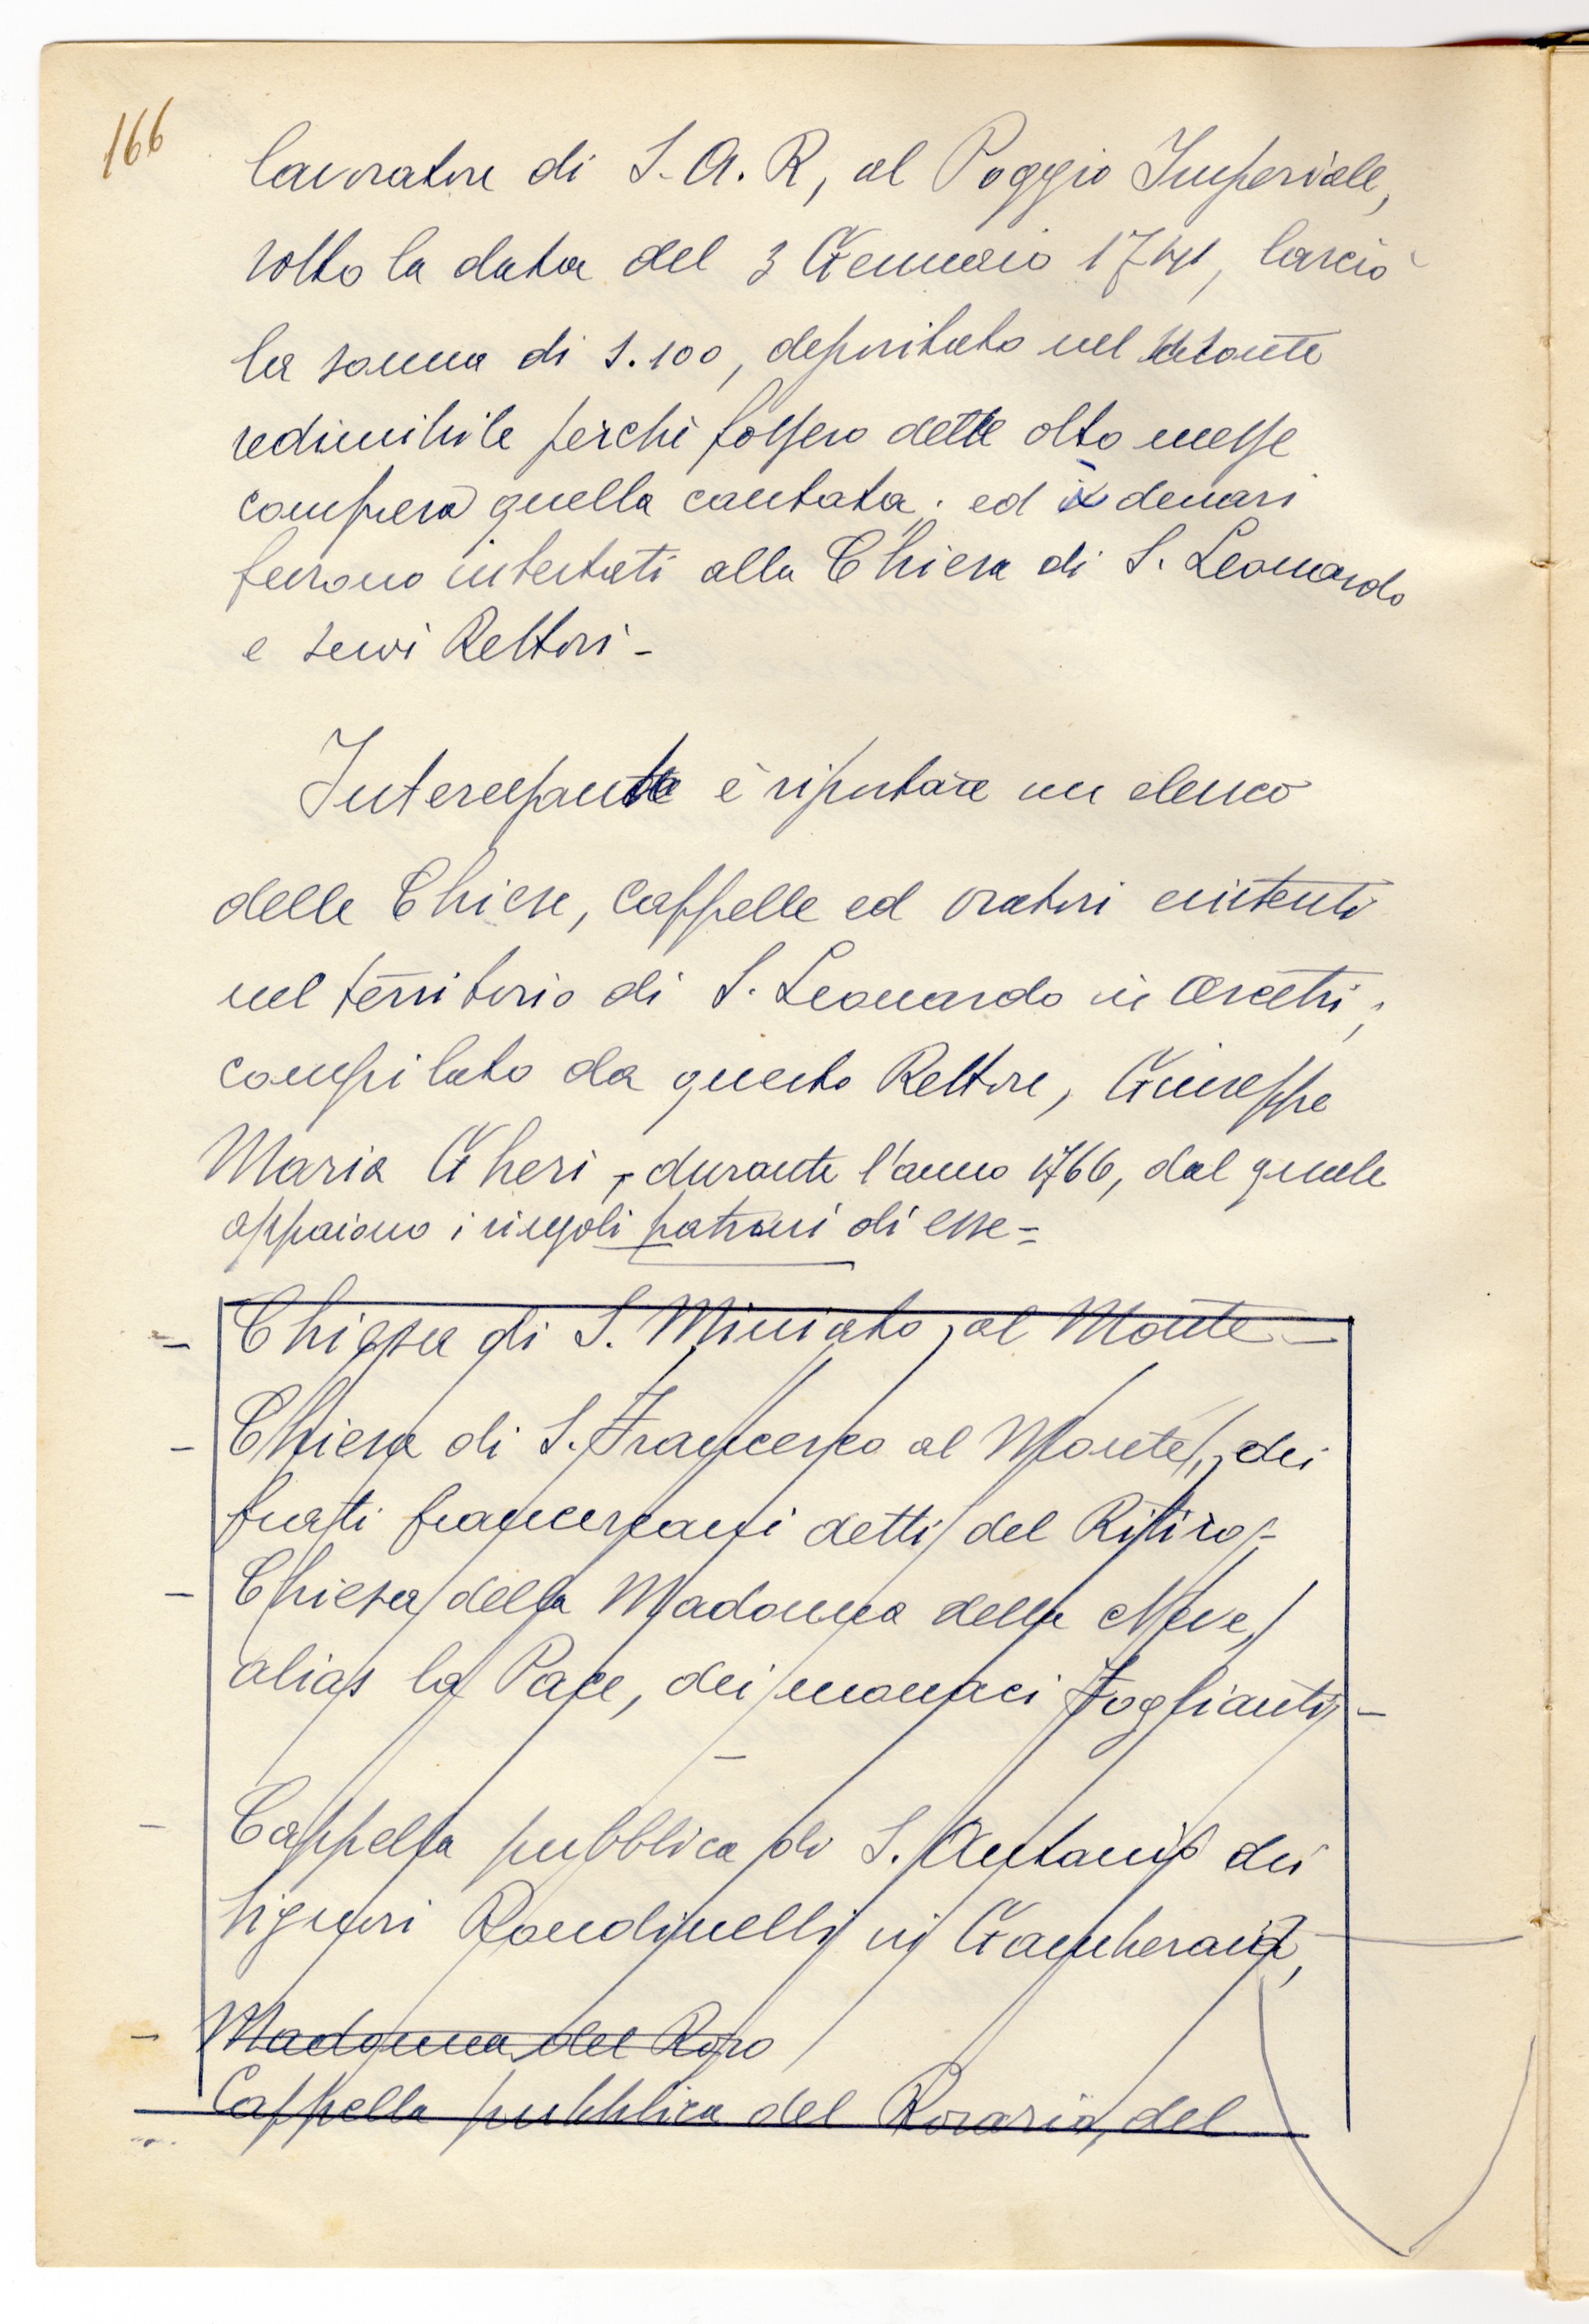 166
lavoratore di S.A.R, al Poggio Imperiale,
sotto la data del 3 Gennaio 1741, lasciò
la somma di s.100, depositato nel Monte
redimibile perchè fossero dette otto messe
compresa quella cantata; ed i denari
furono intestati alla Chiesa di S. Leonardo
e suoi Rettori -
Interessante è riportare un elenco
delle Chiese, cappelle ed oratori esistenti
nel territorio di S. Leonardo in Arcetri,
compilato da questo Rettore, Giuseppe
Maria Gheri, durante l'anno 1766, dal quale
appaiono i singoli patroni di esse =
- Chiesa di S. Miniato, al Monte -
- Chiesa di S. Francesco al Monte, dei
frati francescani detti del Ritiro -
- Chiesa della Madonna della Neve,
alias la Pace, dei monaci Foglianti -
- Cappella pubblica di S. Antonio dei
signori Rondinelli in Gamberaia,
- Madonna del Roso
Cappella pubblica del Rosario, del